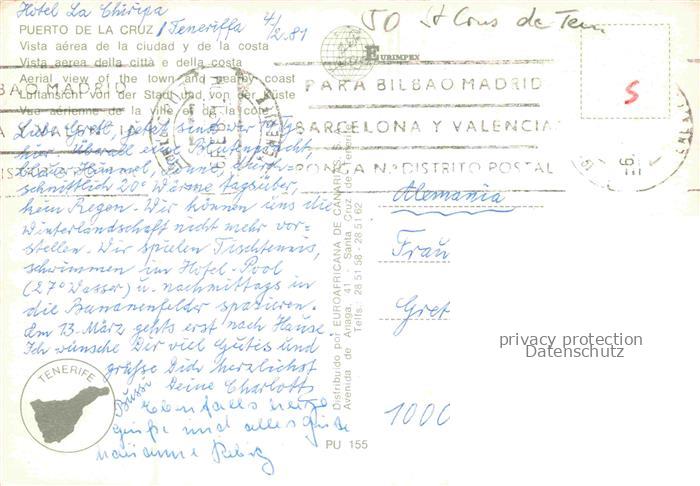 Hotel La Chiripa
PUERTO DE LA CRUZ / Teneriffa 4/2.81
50 St Crus de Ten
Vista aérea de la ciudad y de la costa
Vista aerea della città e della costa
Aerial view of the town and nearby coast
Luftansicht von der Stadt und von der Küste
Vue aérienne de la ville et de la côte
EURIMPEX
PARA BILBAO MADRID
BARCELONA Y VALENCIA
PONGA N.º DISTRITO POSTAL
S
Liebe Gretl, jetzt sind wir
hier überall eine Blütenpracht,
blauer Himmel, Sonne, durch-
schnittlich 20° Wärme tagsüber,
kein Regen. Wir können uns die
Winterlandschaft nicht mehr vor-
stellen. Wir spielen Tischtennis,
schwimmen im Hotel-Pool
(27° Wasser) u. nachmittags in
die Bananenfelder spazieren.
Am 13. März gehts erst nach Hause.
Ich wünsche Dir viel Gutes und
grüße Dich herzlichst
Bussi Deine Charlotte
Ebenfalls herzl.
Grüße und alles Gute
Marianne
TENERIFE
Distribuido por EUROAFRICANA DE CANARIAS, S.
Avenida de Anaga, 41 - Santa Cruz de Tenerife
Telfs.: 28 51 58 - 28 51 62
PU 155
Alemania
Frau
Gret
1000
privacy protection
Datenschutz